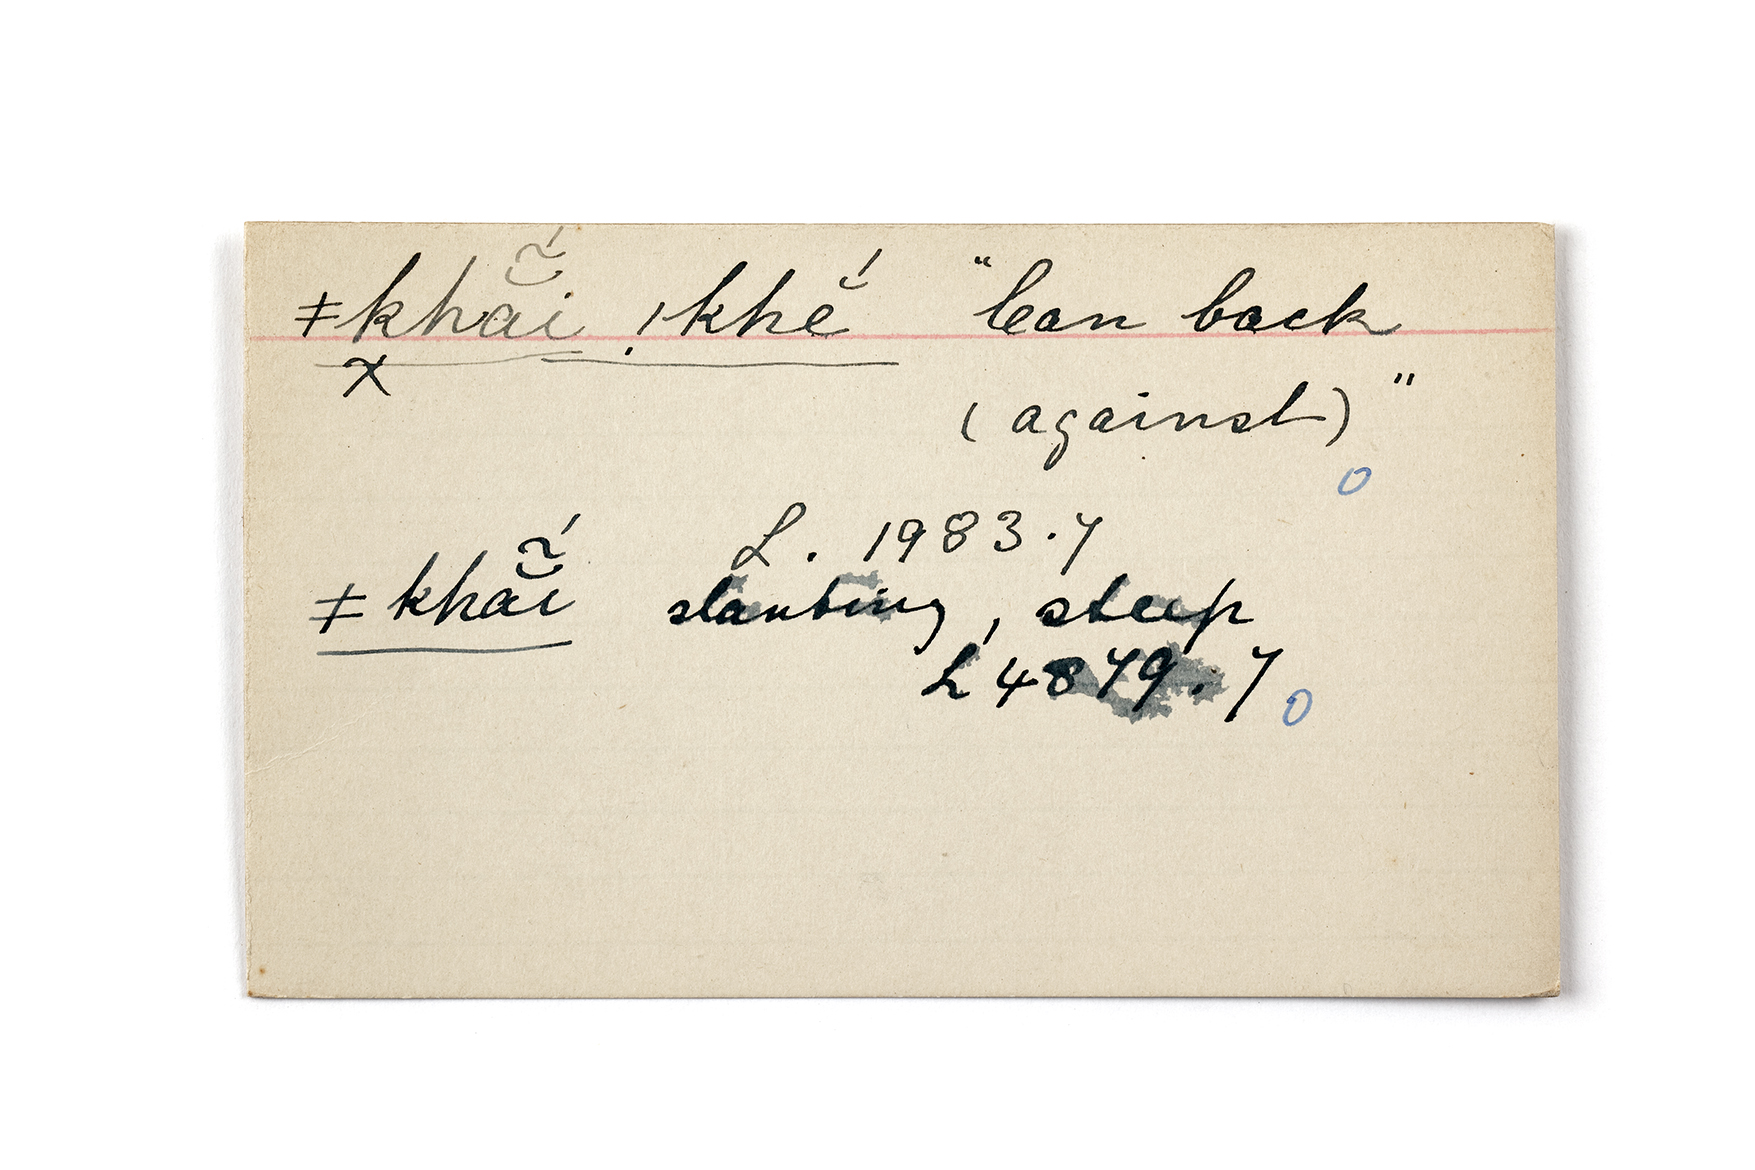 ǂkhà̰̆́i , ǀkhĕ́ "lean back
χ
(against)"
0
L. 1983.7
ǂkhà̰̆́i slanting, steep
L 4879.7 0